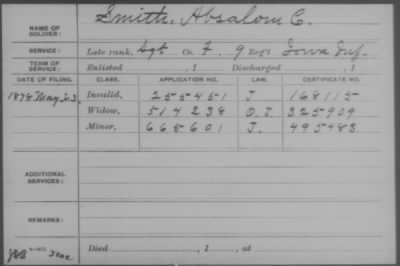 NAME OF SOLDIER: Smith, Absalom C.
SERVICE: Late rank, Sgt Co. F, 9 Reg't Iowa Inf.
TERM OF SERVICE: Enlisted , 1 Discharged , 1
DATE OF FILING. CLASS. APPLICATION NO. LAW. CERTIFICATE NO.
1878 May 23 Invalid, 255451 J. 168115
Widow, 514238 O.J. 325909
Minor, 665601 J. 495483
ADDITIONAL SERVICES:
REMARKS:
Died , 1 , at